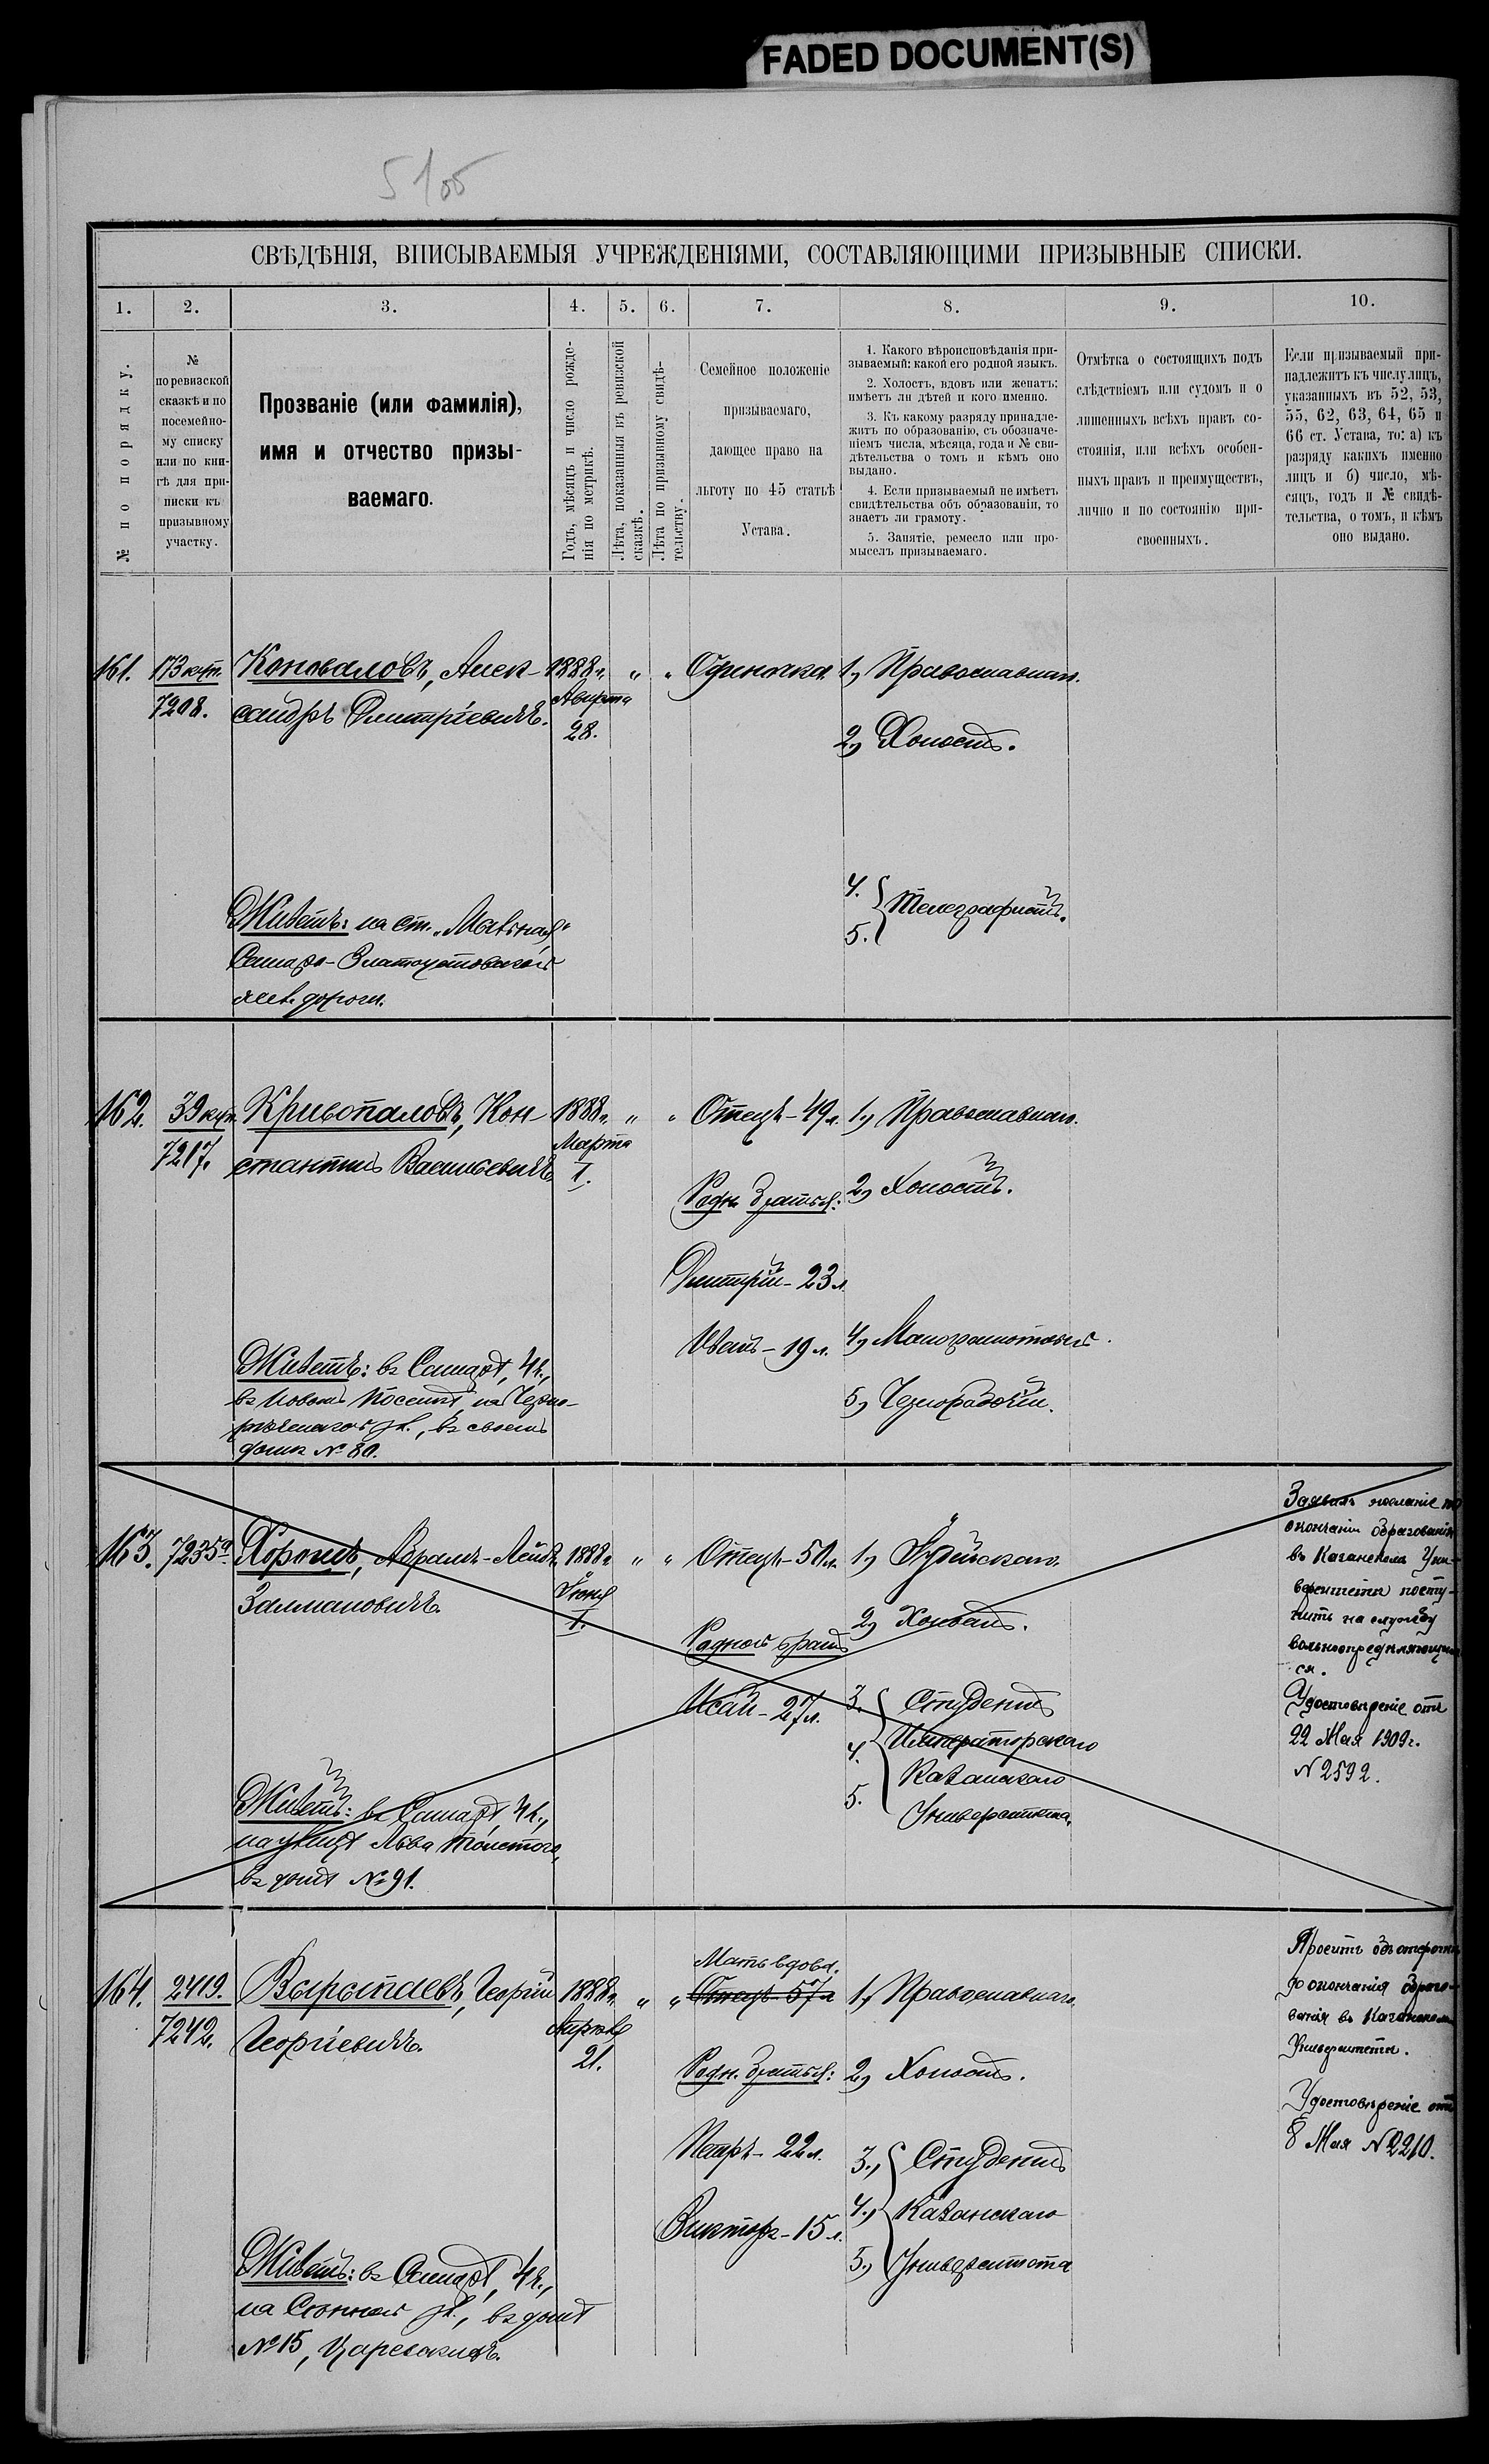 FADED DOCUMENT(S)
5100
СВѢДѢНІЯ, ВПИСЫВАЕМЫЯ УЧРЕЖДЕНІЯМИ, СОСТАВЛЯЮЩИМИ ПРИЗЫВНЫЕ СПИСКИ.
1. 2. 3. 4. 5. 6. 7. 8. 9. 10.
№ по порядку.
№
по ревизской
сказкѣ и по
посемейно-
му списку
или по кни-
гѣ для при-
писки къ
призывному
участку.
Прозваніе (или фамилія),
имя и отчество призы-
ваемаго.
Годъ, мѣсяцъ и число рожде-
нія по метрикѣ.
Лѣта, показанныя въ ревизской
сказкѣ.
Лѣта по призывному свидѣ-
тельству.
Семейное положеніе
призываемаго,
дающее право на
льготу по 45 статьѣ
Устава.
1. Какого вѣроисповѣданія при-
зываемый: какой его родной языкъ.
2. Холостъ, вдовъ или женатъ:
имѣетъ ли дѣтей и кого именно.
3. Къ какому разряду принадле-
житъ по образованію, съ обозначе-
ніемъ числа, мѣсяца, года и № сви-
дѣтельства о томъ и кѣмъ оно
выдано.
4. Если призываемый не имѣетъ
свидѣтельства объ образованіи, то
знаетъ ли грамоту.
5. Занятіе, ремесло или про-
мыселъ призываемаго.
Отмѣтка о состоящихъ подъ
слѣдствіемъ или судомъ и о
лишенныхъ всѣхъ правъ со-
стоянія, или всѣхъ особен-
ныхъ правъ и преимуществъ,
лично и по состоянію при-
своенныхъ.
Если призываемый при-
надлежитъ къ числу лицъ,
указанныхъ въ 52, 53,
55, 62, 63, 64, 65 и
66 ст. Устава, то: а) къ
разряду какихъ именно
лицъ и б) число, мѣ-
сяцъ, годъ и № свидѣ-
тельства, о томъ, и кѣмъ
оно выдано.
161. 173 куп.
7208.
Коноваловъ, Алек-
сандръ Дмитріевичъ.
1888 г.
Августа
28.
" "
Одиночка.
1, Православнаго.
2, Холостъ.
4.
5.
Телеграфистъ.
Живетъ: на ст.
Самаро-Златоустовской
жел. дороги.
162. 39 куп.
7217.
Кривопаловъ, Кон-
стантинъ Васильевичъ.
1888 г.
Марта
1.
" "
Отецъ - 49 л.
Родн. братья:
Дмитрій - 23 л.
Иванъ - 19 л.
1, Православнаго.
2, Холостъ.
4, Малограмотенъ.
5, Чернорабочій.
Живетъ: въ Самарѣ, 4 ч.,
въ Новомъ Поселкѣ, на Черно-
рѣченской ул., въ своемъ
домѣ № 80.
163. 7235а
Абрамъ-Лейбъ
Залмановичъ.
1888 г.
Іюня
1.
" "
Отецъ - 50 л.
Родной братъ
Исай - 27 л.
1, Іудейскаго.
2, Холостъ.
3.
4.
5.
Студентъ
Императорскаго
Казанскаго
Университета.
Живетъ: въ Самарѣ, 4 ч.,
на улицѣ Льва Толстого,
въ домѣ № 91.
Заявилъ желаніе по
окончаніи образованія
въ Казанскомъ Уни-
верситетѣ посту-
пить на службу
вольноопредѣляющим-
ся.
Удостовѣреніе отъ
22 Мая 1909 г.
№ 2592.
164. 2419.
7242.
Вырыпаевъ, Георгій
Георгіевичъ.
1888 г.
Апрѣля
21.
" "
Мать вдова.
Отецъ 57 л.
Родн. братья:
Петръ - 22 л.
Викторъ - 15 л.
1, Православнаго.
2, Холостъ.
3.,
4.,
5.,
Студентъ
Казанскаго
Университета
Живетъ: въ Самарѣ, 4 ч.,
на ул., въ домѣ
№ 15,
Проситъ объ отсрочкѣ
до окончанія образо-
ванія въ Казанскомъ
Университетѣ.
Удостовѣреніе отъ
8 Мая № 2210.